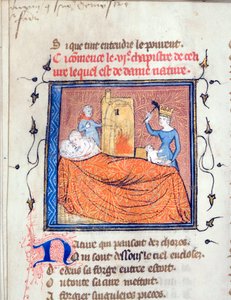 Si que tuit entendre le pourent.
Ci commence le chapistre de ces
liure lequel est de dame nature.
Nature qui pensoit des choses
Qui sont dessous le ciel encloses
Dedens sa forge entree estoit
Ou toute sa cure metoit
A forgier singulieres pieces